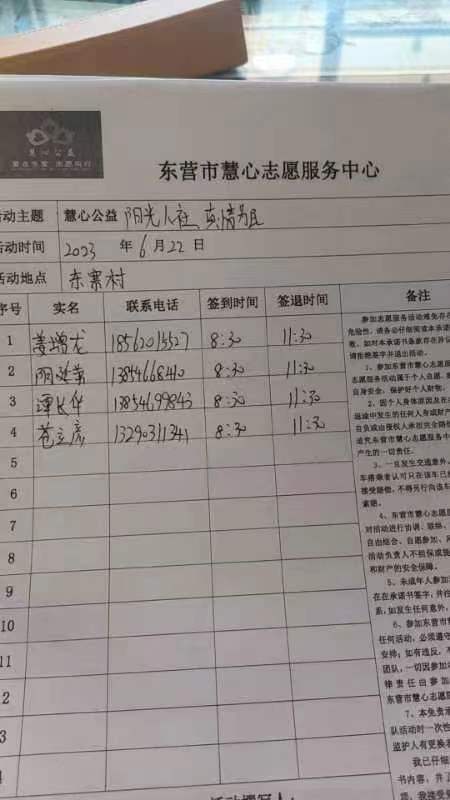 慧心公益
东营市慧心志愿服务中心
活动主题 慧心公益 阳光人社 真情
活动时间 2023 年 6 月 22 日
活动地点 东寨村
序号 实名 联系电话 签到时间 签退时间 备注
1 姜增龙 18562015527 8:30 11:30
2 8:30 11:30
3 谭长华 13854699843 8:30 11:30
4 苍立彦 13290311341 8:30 11:30
5
6
7
8
9
10
11
12
13
14
参加志愿服务活动难免存在
危险性，请务必仔细阅读本承诺
败，如对本承诺书条款存在异议
请拒绝签字并退出活动。
1、参加东营市慧心
愿服务活动属于个人自愿，
自身安全，保护好个人财物。
2、因个人身体原因及在
途中发生的任何人身或财产
自负或由侵权人承担完全赔偿
追究东营市慧心志愿服务中
产生的一切责任。
3、一旦发生交通意外，
车搭乘者认可只在该车已
接受赔偿，不得另行向该车
索赔。
4、东营市慧心志愿服
对活动进行协调、联络、
自由组合、自愿参加、
活动负责人不担保或提
和财产的安全保障。
5、未成年人参加
在在承诺书签字，并
系，如发生任何意外，
6、参加东营市
任何活动，必须遵守
安排；如有违反，不
团队，一切因参加
律责任由参加
东营市慧心志愿服
7、本免责承
队活动时一次性
监护人有更换表
我已仔细
书内容，并了
项，我接受
活动撰写人：